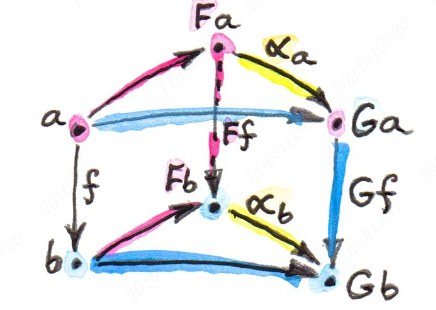 Fa
αa
a
Ga
Ff
f
Fb
Gf
αb
b
Gb